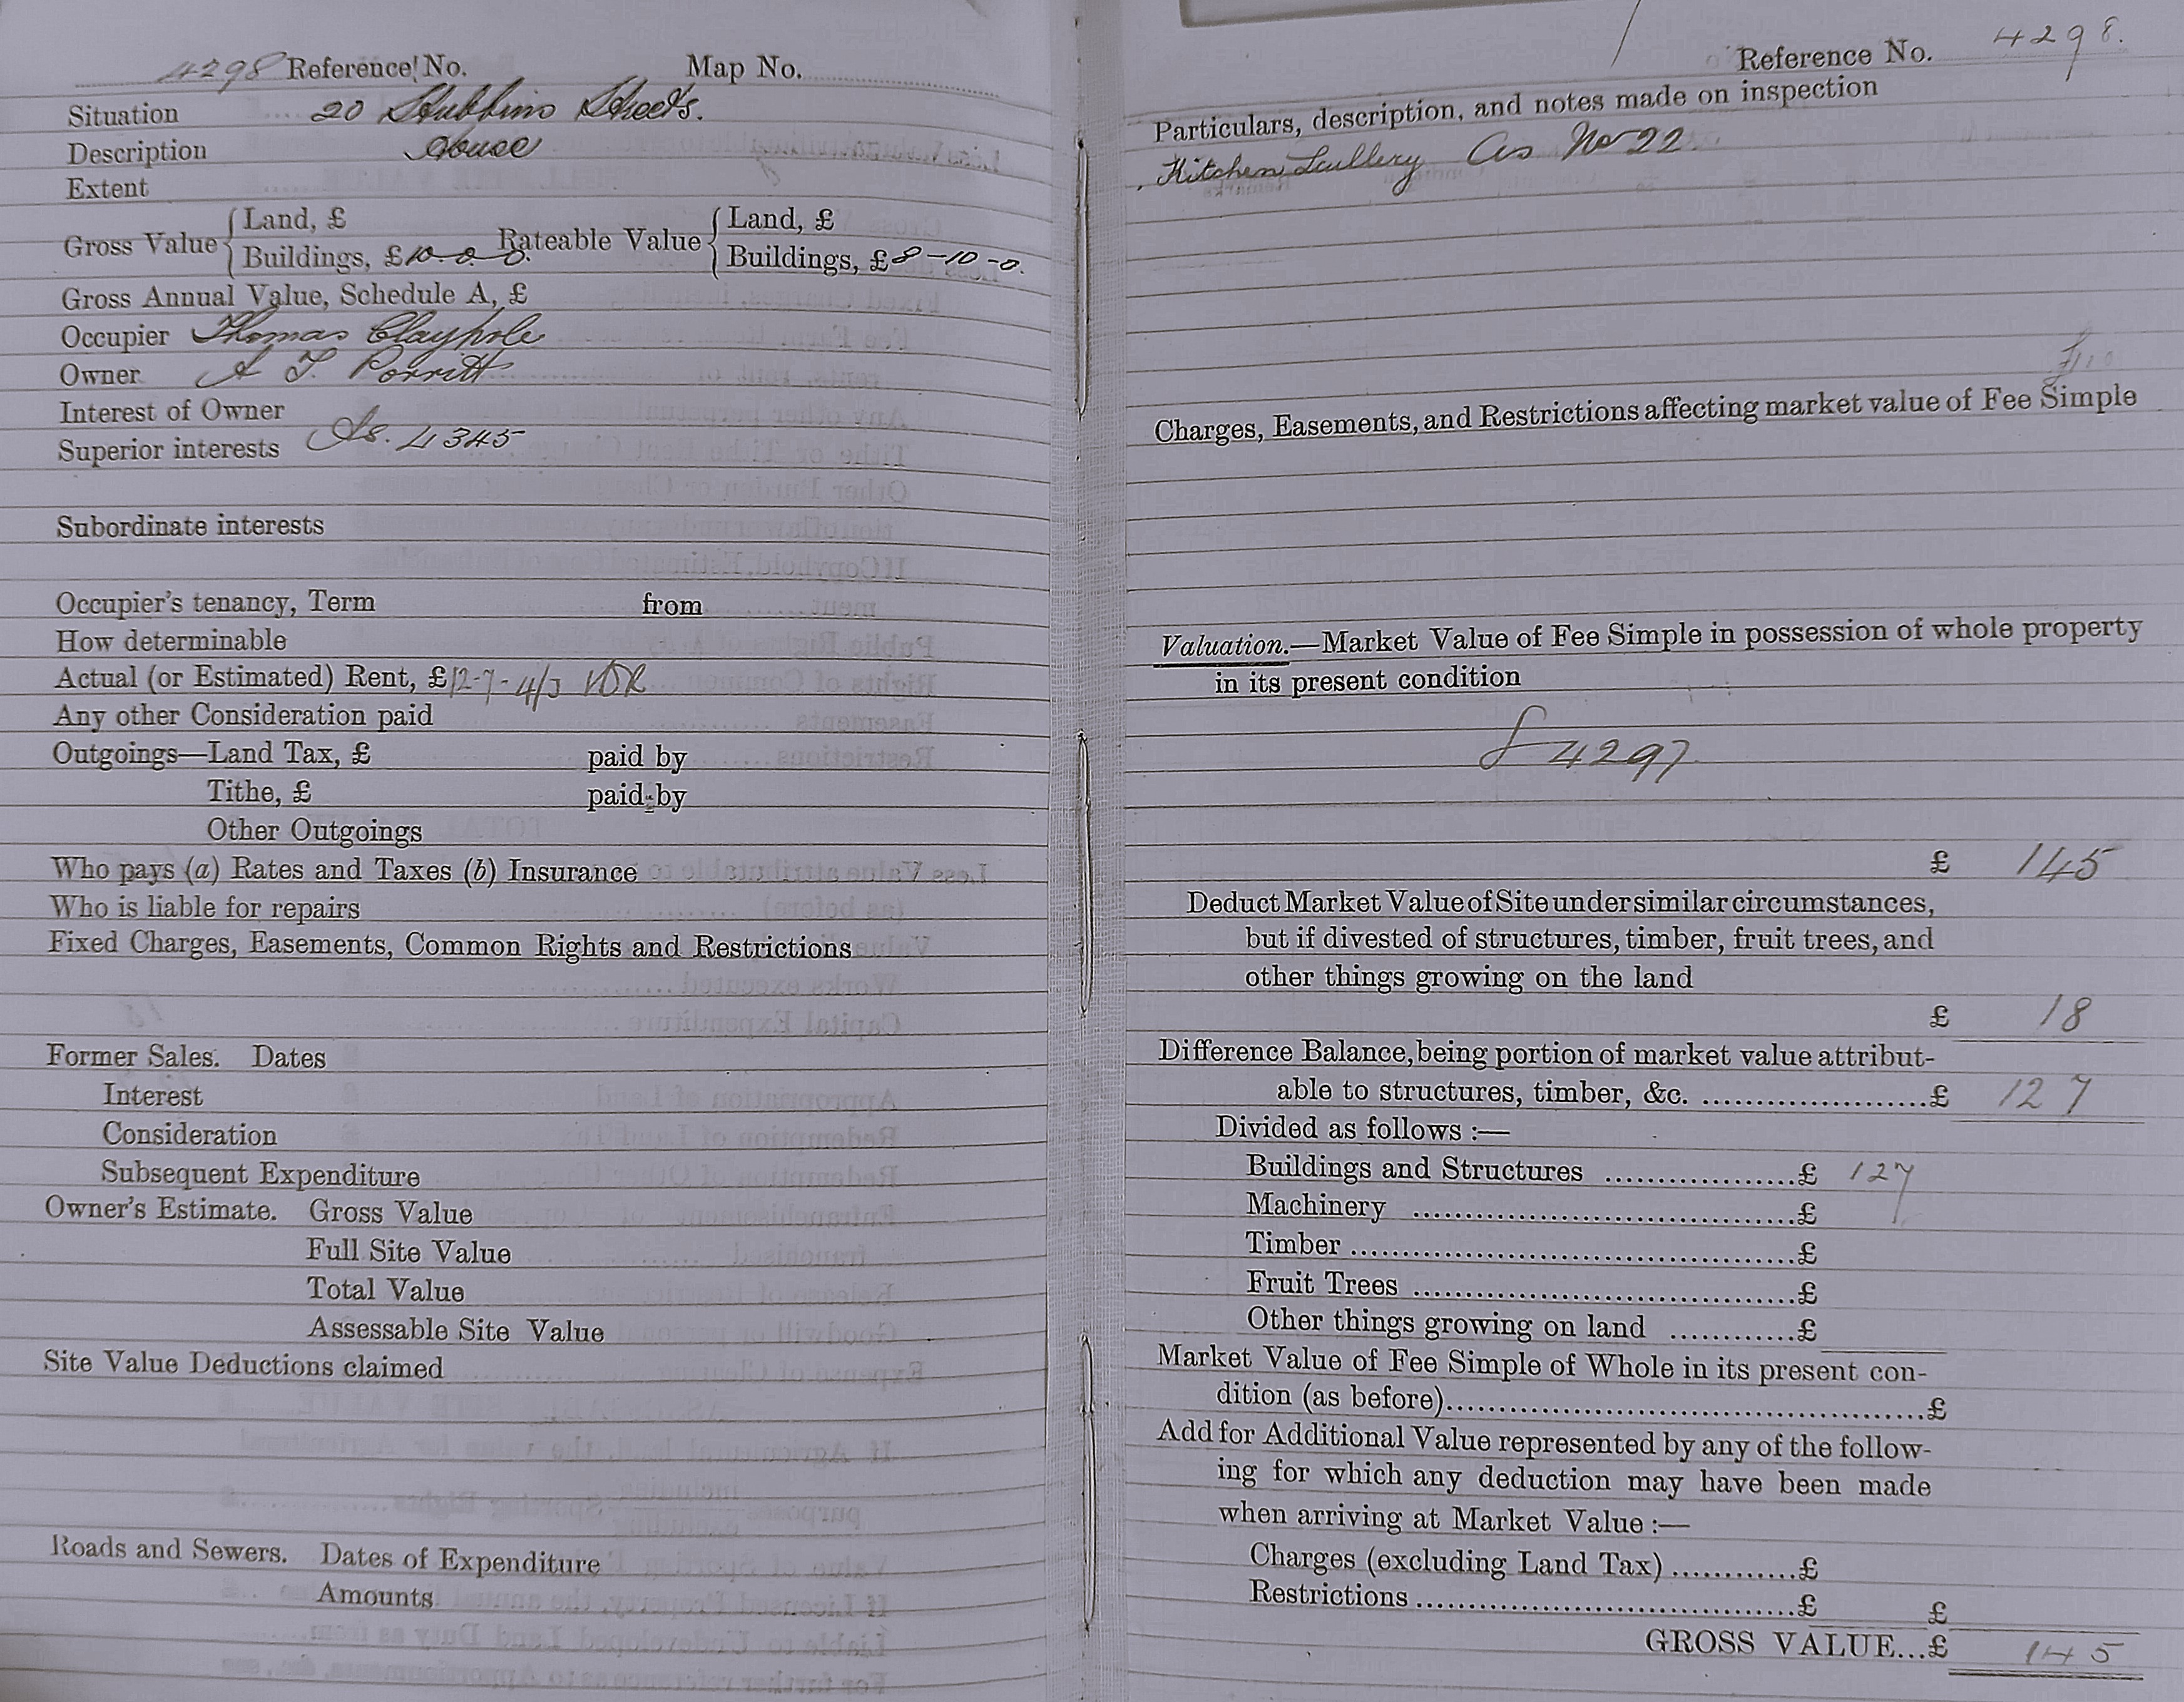 4298 Reference No. Map No.
Situation 20 Stubbins Streets.
Description House
Extent
Gross Value { Land, £ Rateable Value { Land, £
Buildings, £10-0-0. Buildings, £8-10-0.
Gross Annual Value, Schedule A, £
Occupier Thomas Claypole
Owner A T. Porritt
Interest of Owner
Superior interests Ls. 4345
Subordinate interests
Occupier's tenancy, Term from
How determinable
Actual (or Estimated) Rent, £12-7-4/9
Any other Consideration paid
Outgoings—Land Tax, £ paid by
Tithe, £ paid by
Other Outgoings
Who pays (a) Rates and Taxes (b) Insurance
Who is liable for repairs
Fixed Charges, Easements, Common Rights and Restrictions
Former Sales. Dates
Interest
Consideration
Subsequent Expenditure
Owner's Estimate. Gross Value
Full Site Value
Total Value
Assessable Site Value
Site Value Deductions claimed
Roads and Sewers. Dates of Expenditure
Amounts
Reference No. 4298.
Particulars, description, and notes made on inspection
Kitchen, Scullery As No 22
Charges, Easements, and Restrictions affecting market value of Fee Simple
Valuation.—Market Value of Fee Simple in possession of whole property
in its present condition
£ 4297
£ 145
Deduct Market Value of Site under similar circumstances,
but if divested of structures, timber, fruit trees, and
other things growing on the land
£ 18
Difference Balance, being portion of market value attribut-
able to structures, timber, &c. ......................£ 127
Divided as follows :—
Buildings and Structures ...................£ 127
Machinery .....................................£
Timber ...........................................£
Fruit Trees .....................................£
Other things growing on land ............£
Market Value of Fee Simple of Whole in its present con-
dition (as before)...............................................£
Add for Additional Value represented by any of the follow-
ing for which any deduction may have been made
when arriving at Market Value :—
Charges (excluding Land Tax) ............£
Restrictions .....................................£ £
GROSS VALUE...£ 145